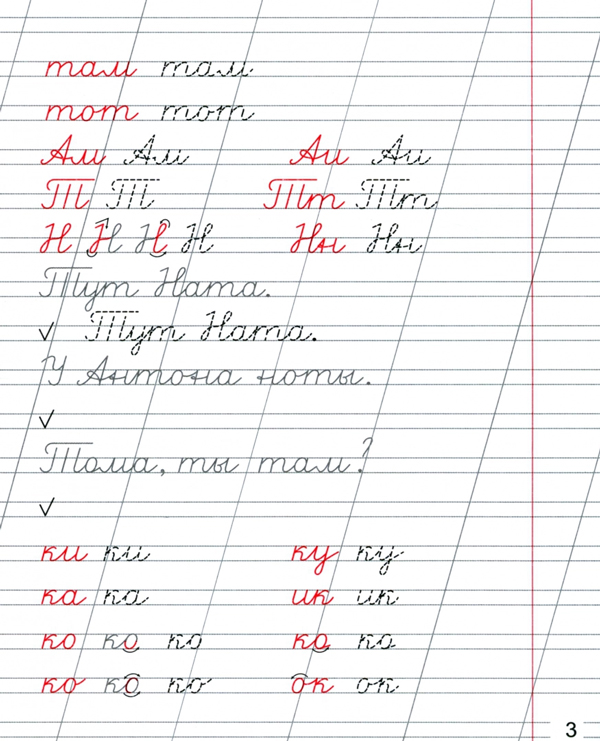 там там
тот тот
Ам Ам Аи Аи
Т Т Тт Тт
Н Н Н Н Нн Нн
Тут Ната.
✓ Тут Ната.
У Антона ноты.
✓
Тома, ты там?
✓
ки ки ку ку
ка ка ик ик
ко ко ко ко ко
ко ко ко ок ок
3